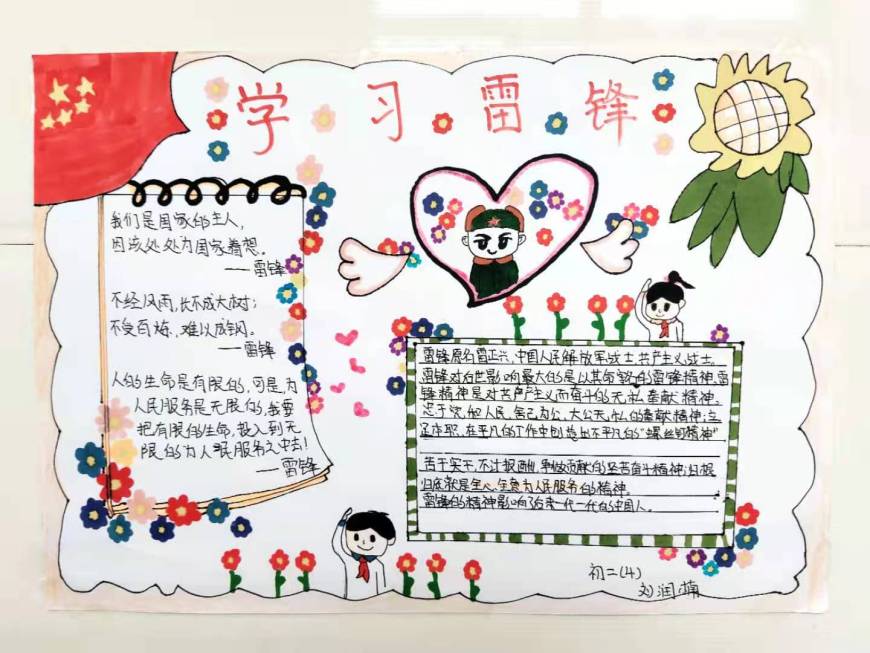 学 习 雷 锋
我们是国家的主人,
应该处处为国家着想。
——雷锋
不经风雨,长不成大树;
不受百炼,难以成钢。
——雷锋
人的生命是有限的,可是,为
人民服务是无限的,我要
把有限的生命,投入到无
限的为人民服务之中去!
——雷锋
雷锋原名雷正兴、中国人民解放军战士,共产主义战士。
雷锋对后世影响最大的是以其命名的雷锋精神,雷
锋精神是对共产主义而奋斗的无私奉献精神。
忠于党和人民、舍己为公、大公无私的奉献精神;立
足本职、在平凡的工作中创造出不平凡的“螺丝钉精神”
苦干实干、不计报酬、争做贡献的艰苦奋斗精神;归根
归底就是全心全意为人民服务的精神。
雷锋的精神影响了后来一代一代的中国人。
初二(4)
刘润楠